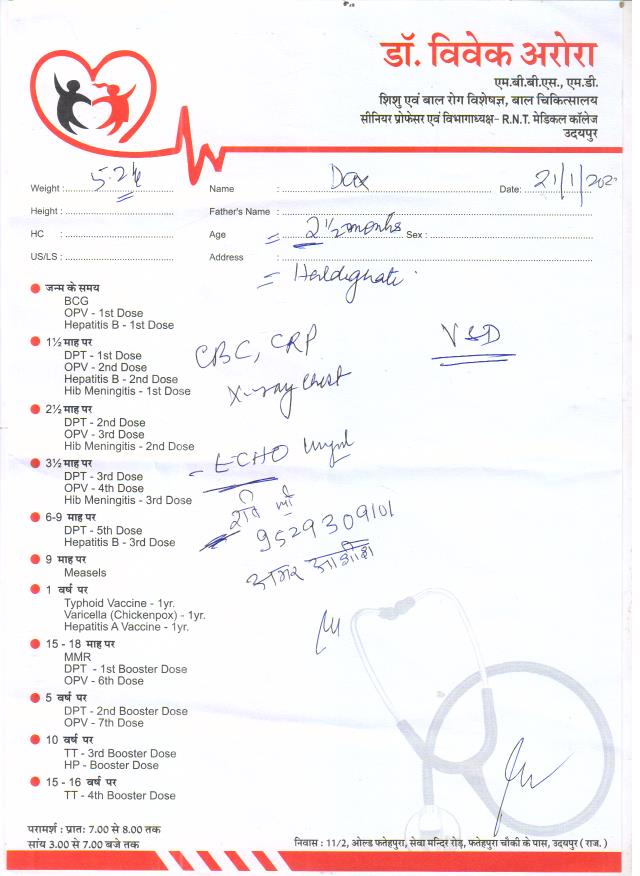 डॉ. विवेक अरोरा
एम.बी.बी.एस., एम.डी.
शिशु एवं बाल रोग विशेषज्ञ, बाल चिकित्सालय
सीनियर प्रोफेसर एवं विभागाध्यक्ष- R.N.T. मेडिकल कॉलेज
उदयपुर
Weight : 5.2 Name : Date: 21/1/202
Height : Father's Name :
HC : Age : 2 1/2 months Sex :
US/LS : Address :
जन्म के समय
BCG
OPV - 1st Dose
Hepatitis B - 1st Dose
1½ माह पर
DPT - 1st Dose
OPV - 2nd Dose
Hepatitis B - 2nd Dose
Hib Meningitis - 1st Dose
CBC, CRP
VSD
X-ray Chest
2½ माह पर
DPT - 2nd Dose
OPV - 3rd Dose
Hib Meningitis - 2nd Dose
3½ माह पर
DPT - 3rd Dose
OPV - 4th Dose
Hib Meningitis - 3rd Dose
- ECHO
6-9 माह पर
DPT - 5th Dose
Hepatitis B - 3rd Dose
9529309101
9 माह पर
Measels
1 वर्ष पर
Typhoid Vaccine - 1yr.
Varicella (Chickenpox) - 1yr.
Hepatitis A Vaccine - 1yr.
15 - 18 माह पर
MMR
DPT - 1st Booster Dose
OPV - 6th Dose
5 वर्ष पर
DPT - 2nd Booster Dose
OPV - 7th Dose
10 वर्ष पर
TT - 3rd Booster Dose
HP - Booster Dose
15 - 16 वर्ष पर
TT - 4th Booster Dose
परामर्श : प्रात: 7.00 से 8.00 तक
सांय 3.00 से 7.00 बजे तक
निवास : 11/2, ओल्ड फतेहपुरा, सेवा मन्दिर रोड़, फतेहपुरा चौकी के पास, उदयपुर ( राज. )